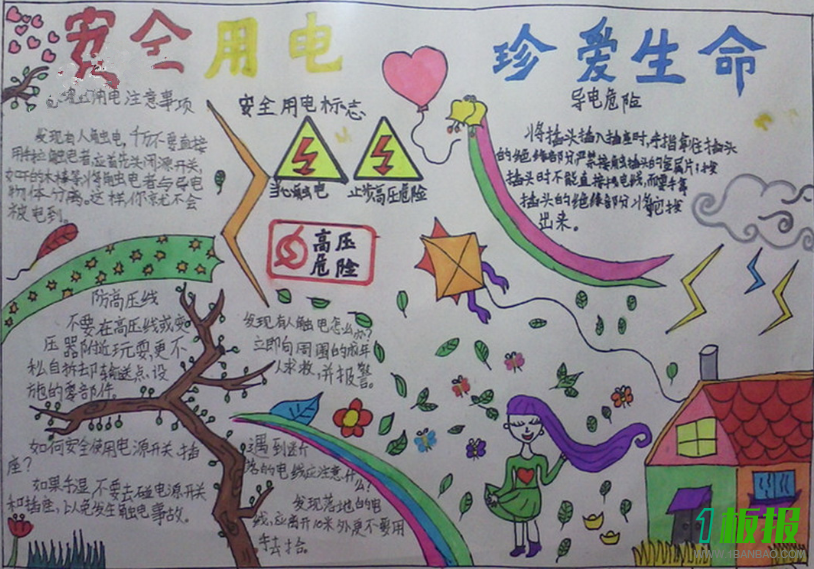 安全用电
珍爱生命
用电注意事项
发现有人触电,千万不要直接
用手拉触电者,应首先关闭源开关,
的木棒等将触电者与导电
物体分离。这样,你就不会
被电到。
安全用电标志
当心触电
止步高压危险
高压
危险
导电危险
将插头插入插座时,手指拿住插头
的绝缘部分严禁接触插头的金属片;拔
插头时不能直接拽电线,而要手拿
插头的绝缘部分将它拔
出来。
防高压线
不要在高压线或变
压器附近玩耍,更不
私自拆卸输送点设
施的零部件。
发现有人触电怎么办?
立即向周围的成年
人求救,并报警。
如何安全使用电源开关、插
座?
如果手湿,不要去碰电源开关
和插座,以免发生触电事故。
遇到跌
落的电线应注意什么!
发现落地的电
线,应离开10米外更不要用
手去拾。
1板报
WWW.1BANBAO.COM